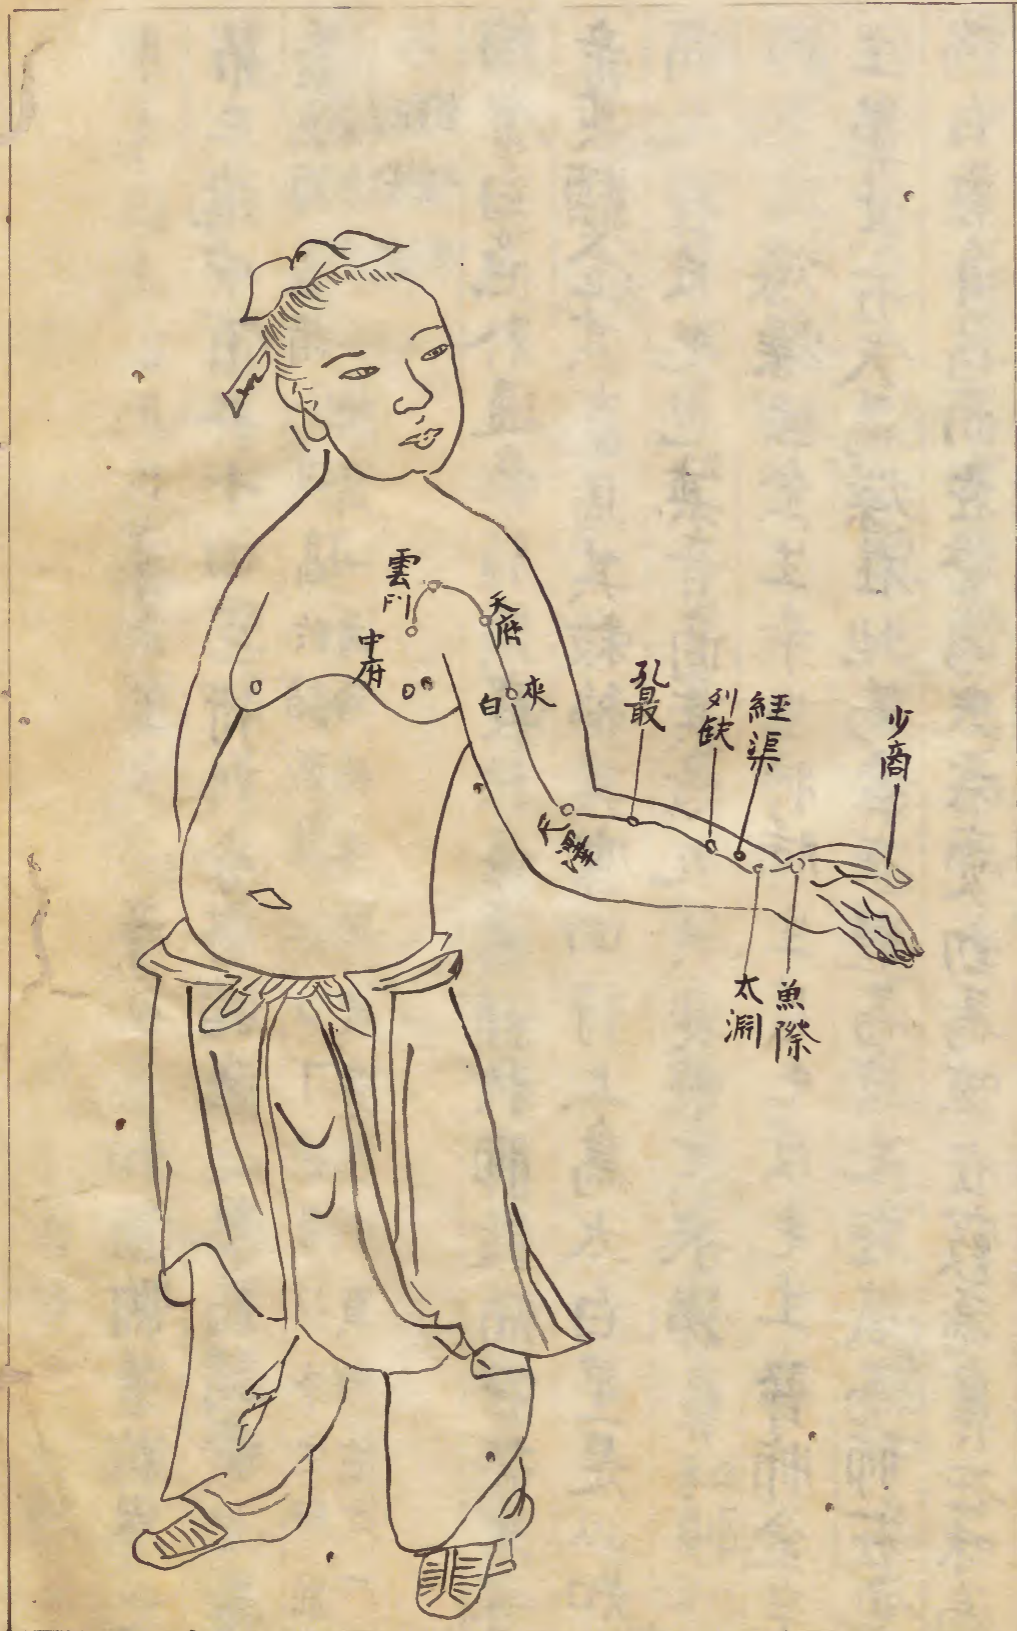 中府
雲門
天府
夾白
尺澤
孔最
列缺
經渠
太淵
魚際
少商